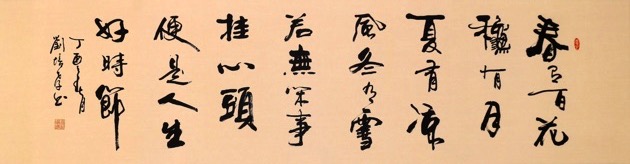 春有百花
龝有月
夏有凉
風冬有雪
若無闲事
挂心頭
便是人生
好時節
丁酉年月
劉书